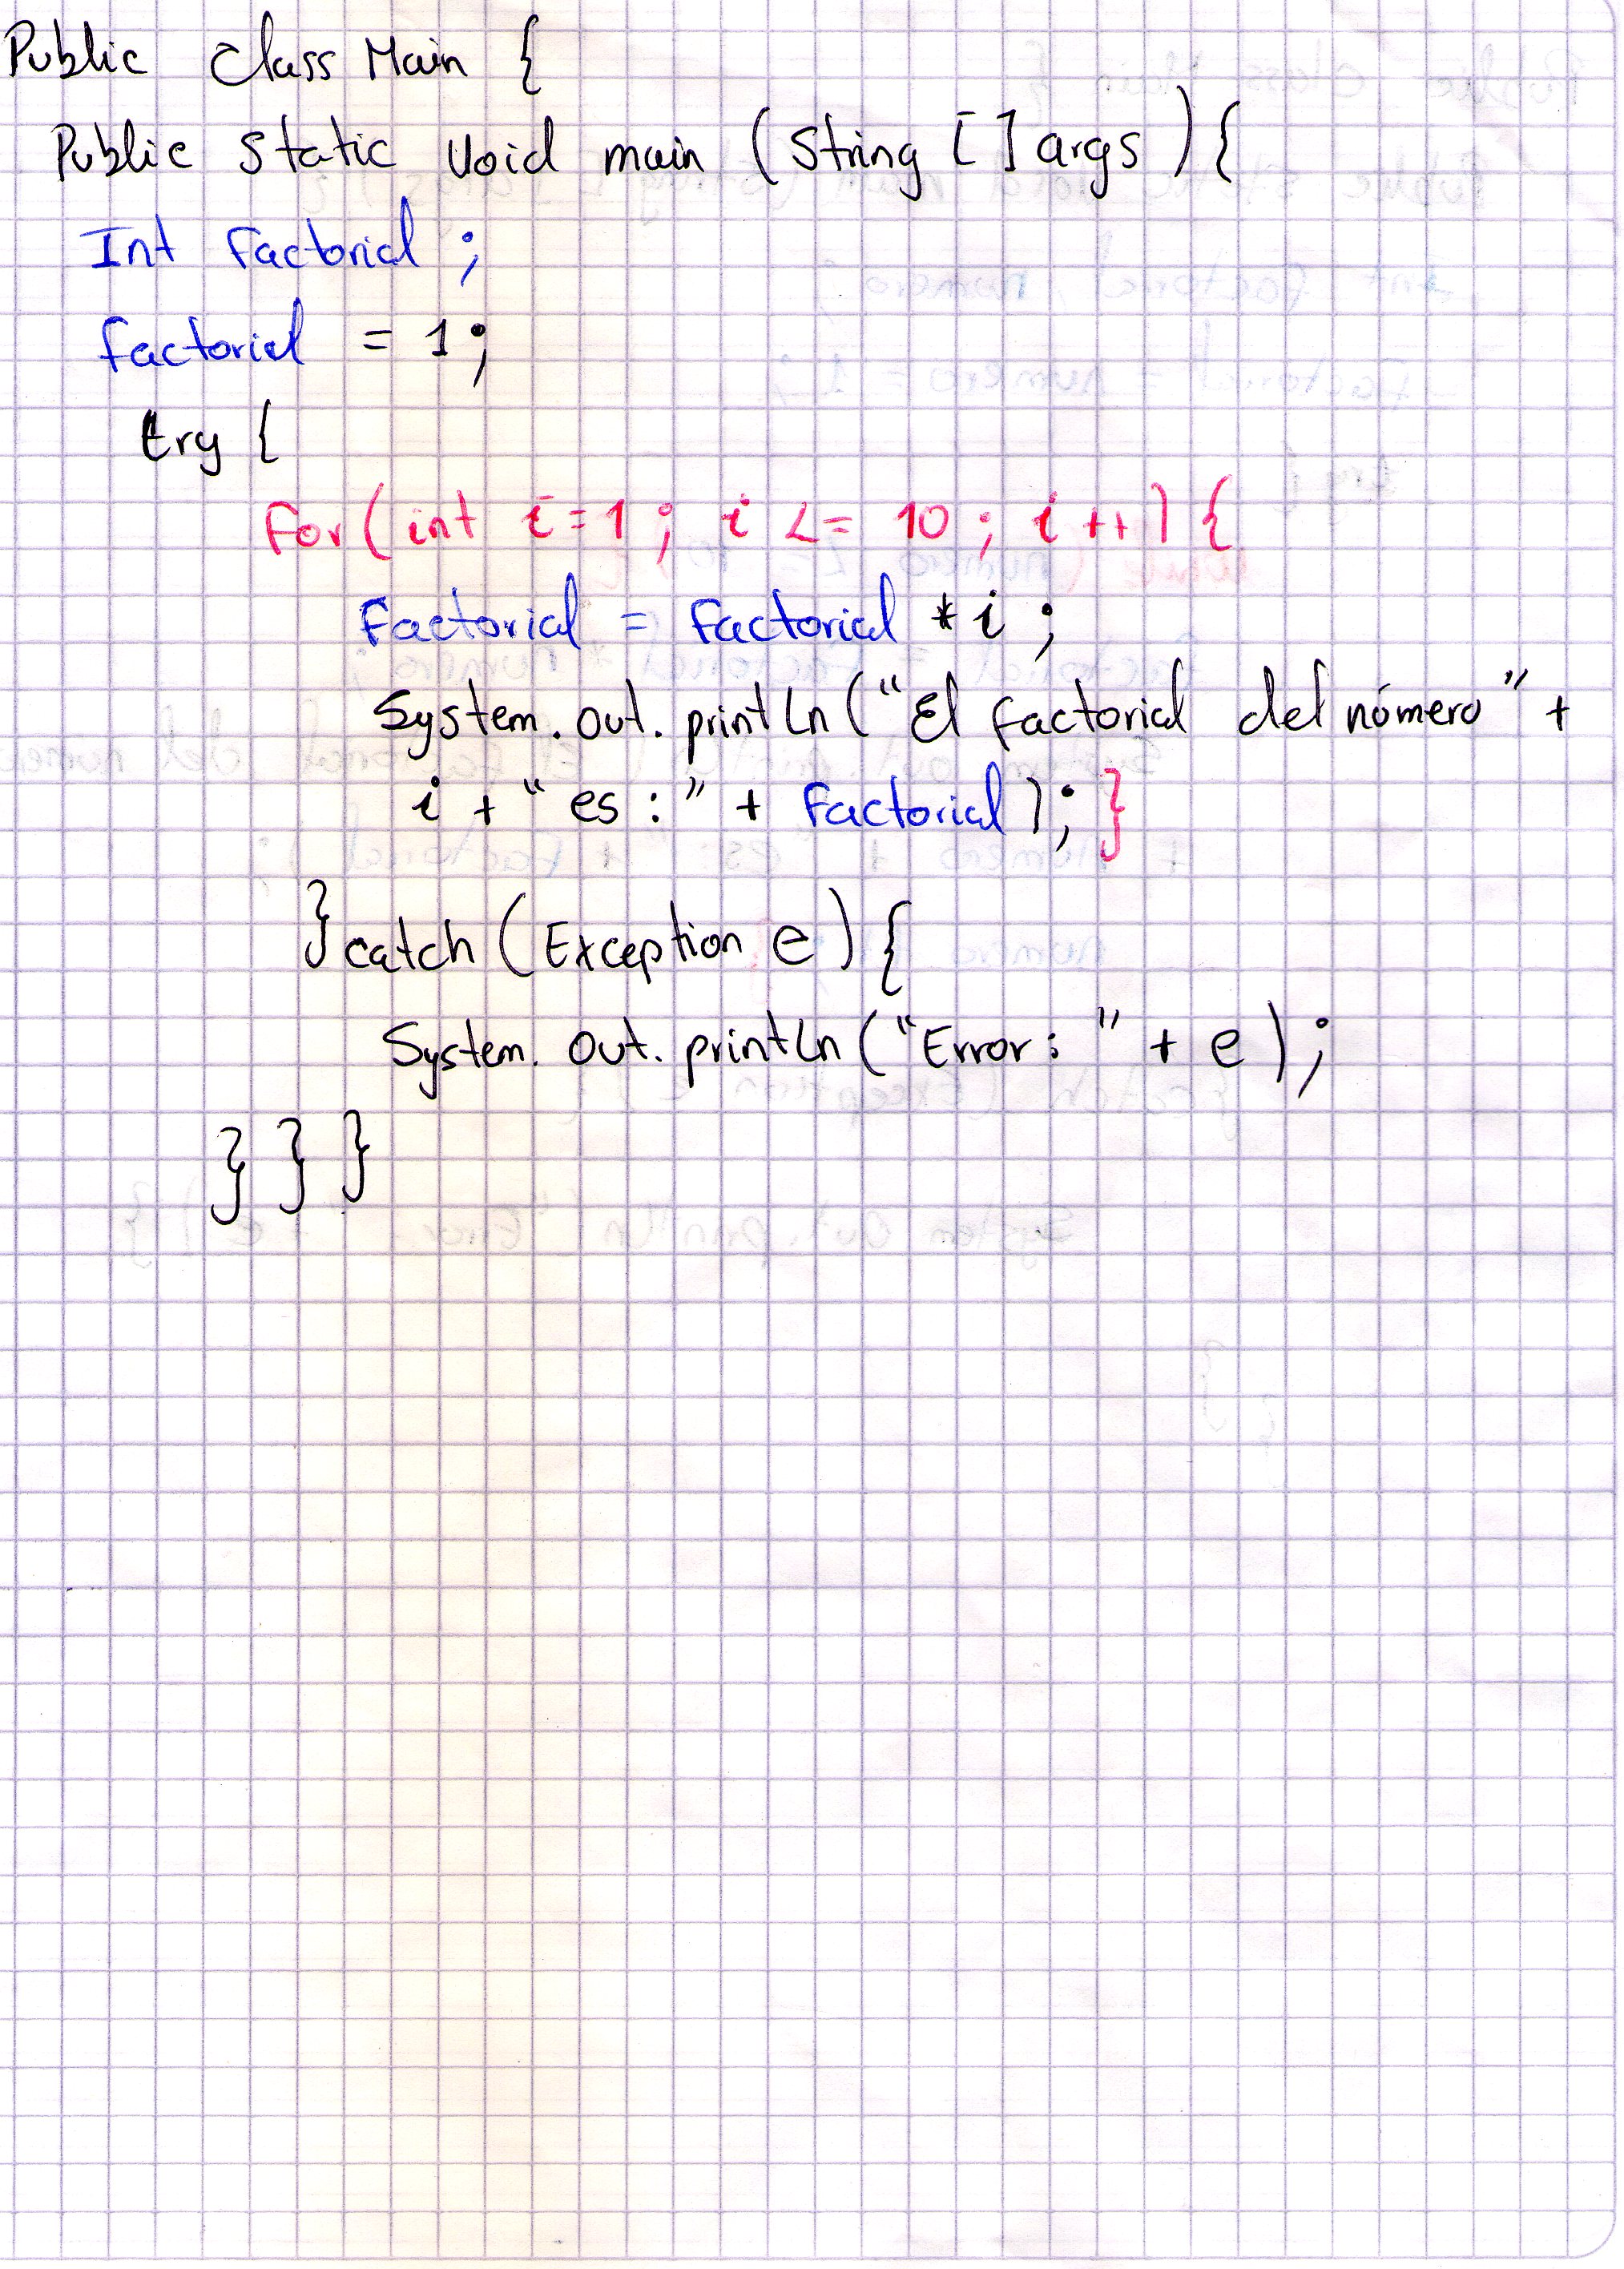 Public class Main {
Public static void main (String [] args ){
Int factorial ;
factorial = 1;
try {
for( int i=1 ; i <= 10 ; i ++) {
Factorial = factorial * i ;
System.out.println("El factorial del número" +
i + " es : " + factorial ); }
}catch (Exception e) {
System.out.println ("Error: " + e );
} } }